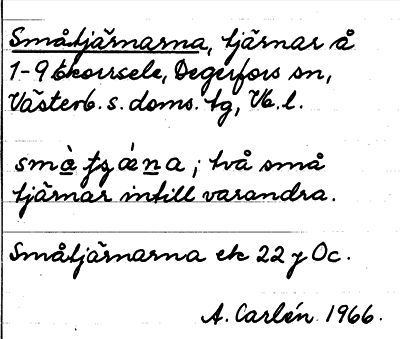 Småtjärnarna, tjärnar å
1-9 Ekorrsele, Degerfors sn,
Västerb. s. doms. tg, Vb. l.
små; två små
tjärnar intill varandra.
Småtjärnarna ek 22 y Oc.
A. Carlén 1966.